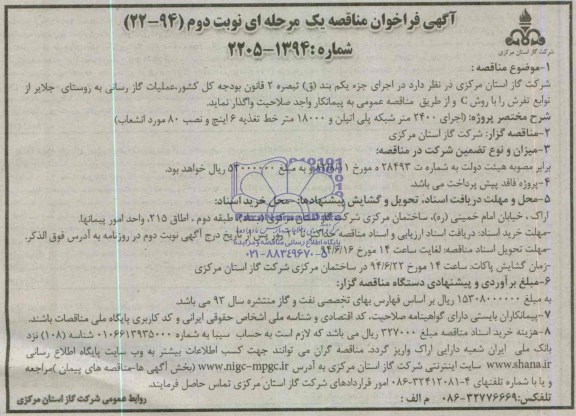 آگهی فراخوان مناقصه یک مرحله ای نوبت دوم (۹۴-۲۲)
شماره: ۱۳۹۴-۲۲۰۵
شرکت گاز استان مرکزی
۱-موضوع مناقصه:
شرکت گاز استان مرکزی در نظر دارد در اجرای جزء یکم بند (ق) تبصره ۲ قانون بودجه کل کشور،عملیات گاز رسانی به روستای جلایر از
توابع تفرش را با روش C و از طریق مناقصه عمومی به پیمانکار واجد صلاحیت واگذار نماید.
شرح مختصر پروژه: (اجرای ۲۴۰۰ متر شبکه پلی اتیلن و ۱۸۰۰۰ متر خط تغذیه ۶ اینچ و نصب ۸۰ مورد انشعاب)
۲-مناقصه گزار: شرکت گاز استان مرکزی
۳-میزان و نوع تضمین شرکت در مناقصه:
برابر مصوبه هیئت دولت به شماره ت ۲۸۴۹۳ ه مورخ به مبلغ ریال خواهد بود.
۴-پروژه فاقد پیش پرداخت می باشد
۵-محل و مهلت دریافت اسناد، تحویل و گشایش پیشنهادها: محل خرید اسناد:
اراک ، خیابان امام خمینی (ره)، ساختمان مرکزی شرکت گاز استان مرکزی طبقه دوم ، اطاق ۲۱۵، واحد امور پیمانها.
-مهلت خرید اسناد: دریافت اسناد ارزیابی و اسناد مناقصه روز پس از تاریخ درج آگهی نوبت دوم در روزنامه به آدرس فوق الذکر.
-مهلت تحویل اسناد مناقصه: لغایت ساعت ۱۴ مورخ ۹۴/۶/۱۶
-زمان گشایش پاکات: ساعت ۱۴ مورخ ۹۴/۶/۲۲ در ساختمان مرکزی شرکت گاز استان مرکزی
پایگاه اطلاع رسانی مناقصه و مزایده
۰۲۱-۸۸۳۴۹۶۷۰-۵
۶-مبلغ برآوردی و پیشنهادی دستگاه مناقصه گزار:
به مبلغ ۱۵۳۰۸۰۰۰۰۰۰ ریال بر اساس فهارس بهای تخصصی نفت و گاز منتشره سال ۹۳ می باشد.
۷-پیمانکاران بایستی دارای گواهینامه صلاحیت، کد اقتصادی و شناسه ملی اشخاص حقوقی ایرانی و کد کاربری پایگاه ملی مناقصات باشند.
۸-هزینه خرید اسناد مناقصه مبلغ ۳۲۷۰۰۰ ریال می باشد که لازم است به حساب سیبا به شماره ۰۱۰۶۶۱۳۹۳۵۰۰۰ شناسه (۱۰۸) نزد
بانک ملی ایران شعبه دارایی اراک واریز گردد. مناقصه گران می توانند جهت کسب اطلاعات بیشتر به وب سایت پایگاه اطلاع رسانی
www.shana.ir سایت اینترنتی شرکت گاز استان مرکزی به آدرس www.nigc-mpgc.ir (بخش آگهی ها-مناقصه های پیمان )مراجعه
و یا با شماره تلفنهای ۴-۰۸۶-۳۲۴۱۲۰۸۱ امور قراردادهای شرکت گاز استان مرکزی تماس حاصل فرمایند.
تلفکس:۰۸۶-۳۳۲۷۶۶۶۹
روابط عمومی شرکت گاز استان مرکزی